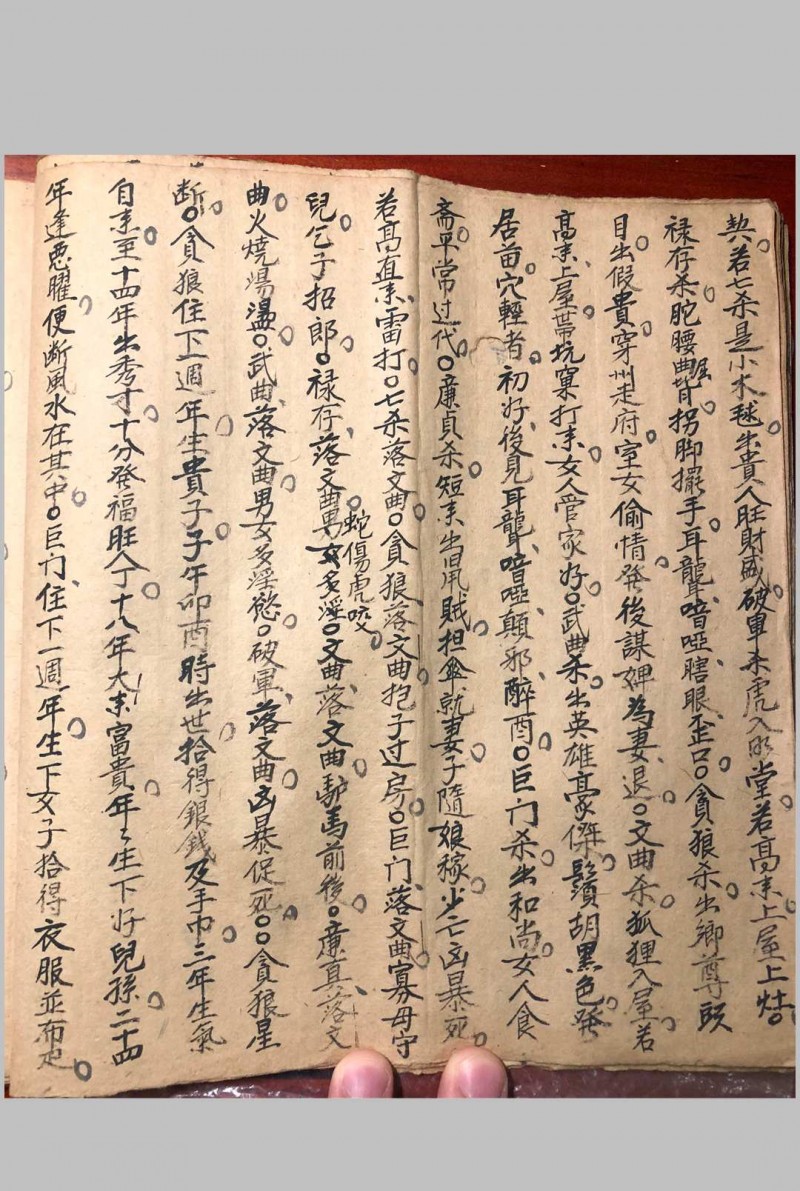 契若七杀是小木毬出貴人旺財盛破軍杀虎入明堂若高来上屋上灶
禄存杀駝腰曲背拐脚擺手耳聾喑啞瞎眼歪口貪狼杀出鄉尊頭
目出假貴穿州走府室女偷情發後謀婢為妻退文曲杀狐狸入屋若
高来上屋帶坑窠打来女人管家好武曲杀出英雄豪傑鬚胡黑色發
居苗穴輕者初好後見耳聾喑啞顛邪醉酉巨门杀出和尚女人食
斋平常过代廉貞杀短来出賊担傘就妻子隨娘稼少亡凶暴死
若高直来雷打七杀落文曲貪狼落文曲抱子过房巨门落文曲寡母守
兒乞子招郎禄存落文曲男女多淫蛇傷虎咬文曲落文曲馿馬前後廉真落文
曲火燒湯盪武曲落文曲男女多淫慾破軍落文曲凶暴促死貪狼星
断貪狼住下一週年生貴子子午卯酉時出世拾得銀錢及手巾三年生氣
自来至十四年出秀才十分發福旺人丁十八年大来富貴年々生下好兒孫二十四
年逢惡曜便断風水在其中巨门住下一週年生下女子拾得衣服並布疋